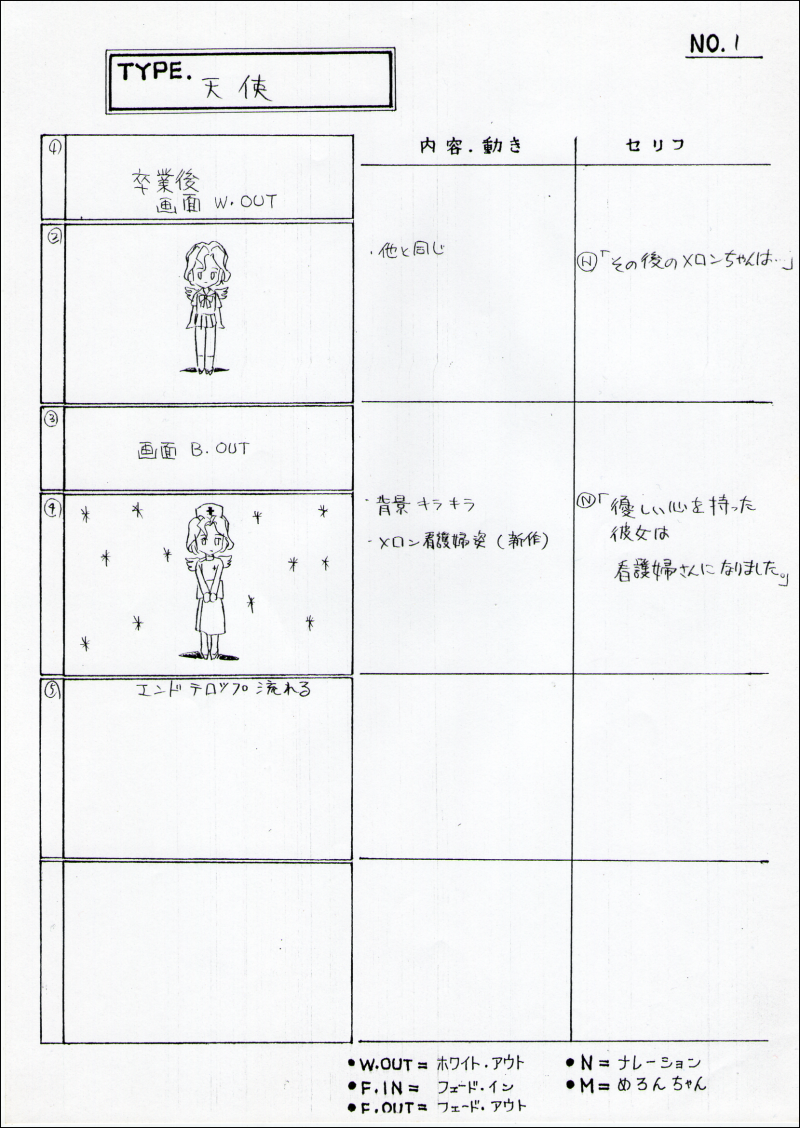 NO.1
TYPE.
天使
内容.動き
セリフ
①
卒業後
画面 W.OUT
②
・他と同じ
Ⓝ「その後のメロンちゃんは…」
③
画面 B.OUT
④
・背景キラキラ
・メロン看護婦姿(新作)
Ⓝ「優しい心を持った
彼女は
看護婦さんになりました。」
⑤
エンドテロップ流れる
●W.OUT=ホワイト.アウト
●F.IN=フェード.イン
●F.OUT=フェード.アウト
●N=ナレーション
●M=めろんちゃん